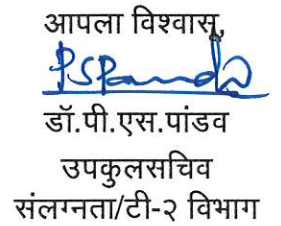 आपला विश्वासू,
PSPandav
डॉ.पी.एस.पांडव
उपकुलसचिव
संलग्नता/टी-२ विभाग